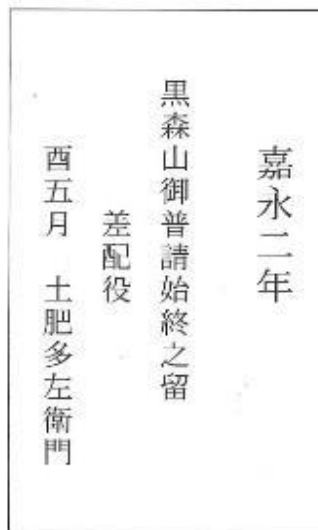 嘉永二年
黒森山御普請始終之留
差配役
酉五月　土肥多左衛門